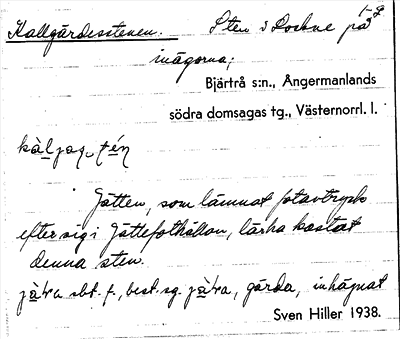 Kallgärdesstenen. Sten i Lockne på
inägorna;
Bjärtrå s:n., Ångermanlands
södra domsagas tg., Västernorrl. l.
Jätten, som lämnat fotavtryck
efter sig i Jättefothällan, lärha kastat
denna sten.
sbt. f., best. sg. gärda, inhägnat
Sven Hiller 1938.